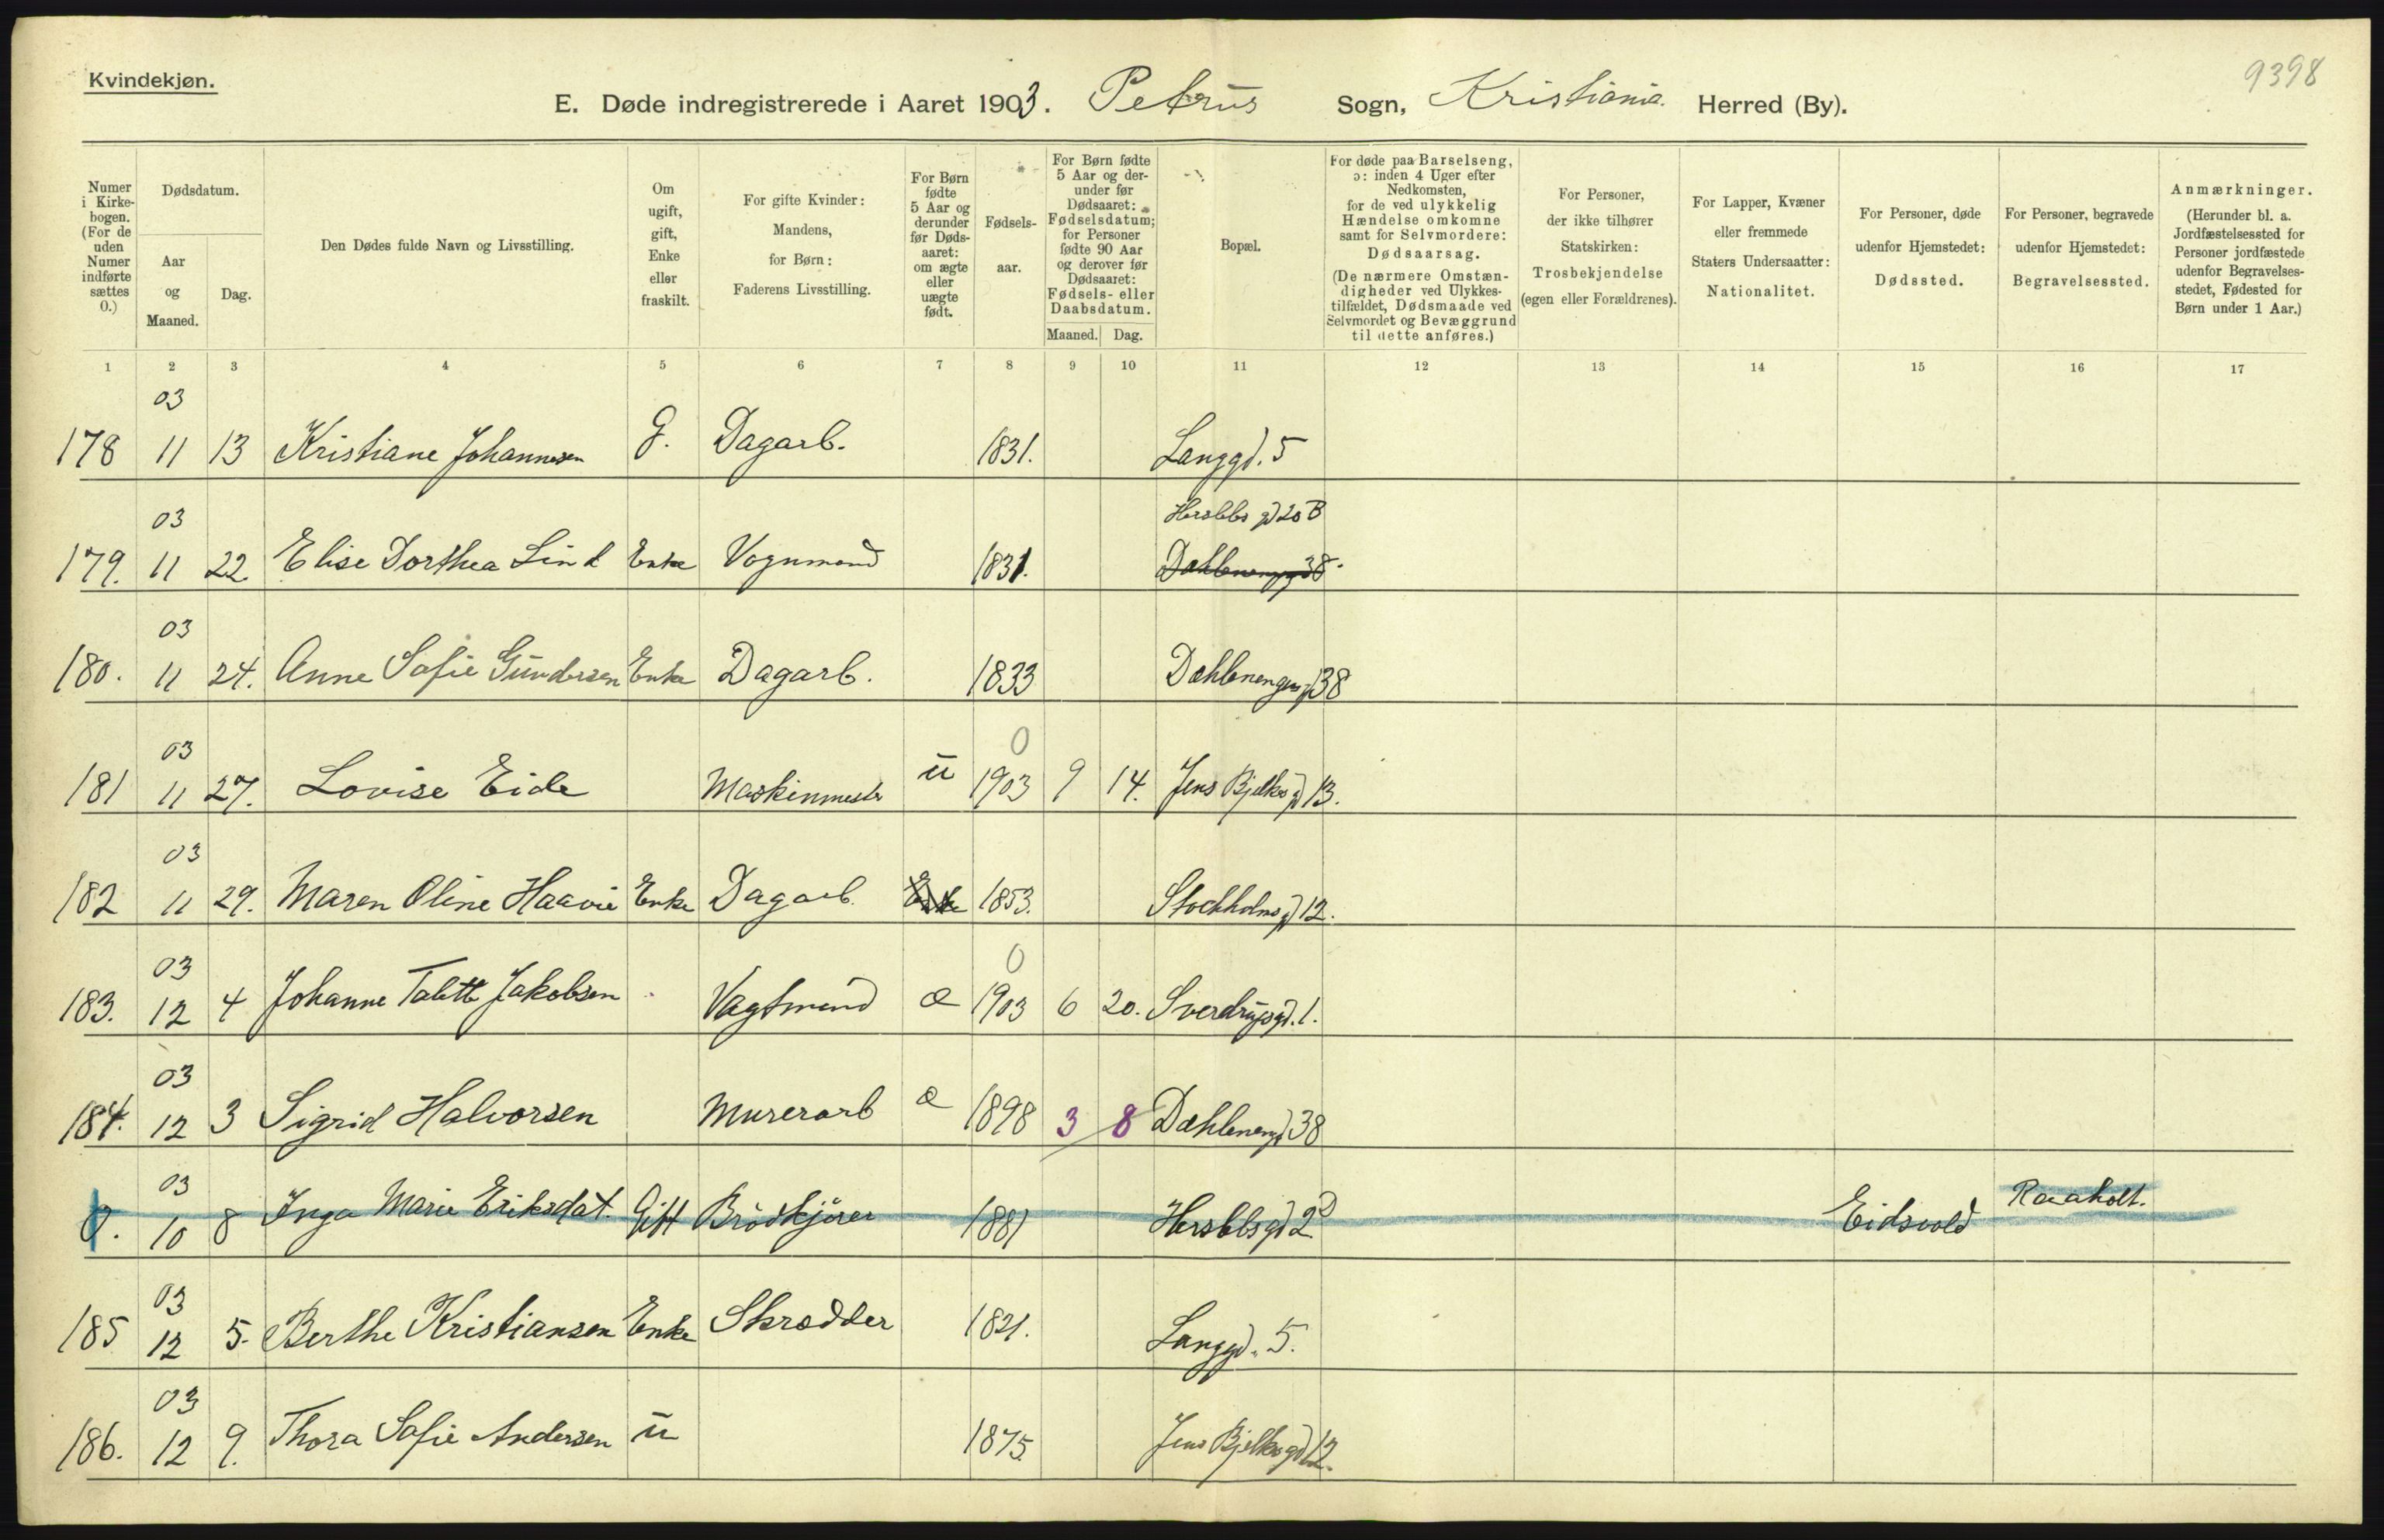 Kvindekjøn.
9398
E. Døde indregistrerede i Aaret 1903. Petrus Sogn, Kristiania Herred (By).
Numer i Kirkebogen. (For de uden Numer indførte sættes 0.)
Dødsdatum.
Aar og Maaned.
Dag.
Den Dødes fulde Navn og Livsstilling.
Om ugift, gift, Enke eller fraskilt.
For gifte Kvinder: Mandens, for Børn: Faderens Livsstilling.
For Børn fødte 5 Aar og derunder før Dødsaaret: om ægte eller uægte født.
Fødselsaar.
For Børn fødte 5 Aar og derunder før Dødsaaret: Fødselsdatum; for Personer fødte 90 Aar og derover før Dødsaaret: Fødsels- eller Daabsdatum.
Maaned. Dag.
Bopæl.
For døde paa Barselseng, ɔ: inden 4 Uger efter Nedkomsten, for de ved ulykkelig Hændelse omkomne samt for Selvmordere: Dødsaarsag. (De nærmere Omstændigheder ved Ulykkestilfældet, Dødsmaade ved Selvmordet og Bevæggrund til dette anføres.)
For Personer, der ikke tilhører Statskirken: Trosbekjendelse (egen eller Forældrenes).
For Lapper, Kvæner eller fremmede Staters Undersaatter: Nationalitet.
For Personer, døde udenfor Hjemstedet: Dødssted.
For Personer, begravede udenfor Hjemstedet: Begravelsessted.
Anmærkninger. (Herunder bl. a. Jordfæstelsessted for Personer jordfæstede udenfor Begravelsesstedet, Fødested for Børn under 1 Aar.)
1 2 3 4 5 6 7 8 9 10 11 12 13 14 15 16 17
03
178 11 13 Kristiane Johannesen g. Dagarb. 1831. Langgd. 5
03 Herslebs gd 20 B
179. 11 22. Elise Dorthea Lind Enke Vognmand 1831. Dahlenenggd 38.
03
180. 11 24. Anne Sofie Gundersen Enke Dagarb. 1833 Dæhlenengengd 38
03 0
181 11 27. Lovise Eide Maskinmester u 1903 9 14. Jens Bjelkes gd 13.
03
182 11 29. Maren Oline Haavie Enke Dagarb. Enke 1853. Stockholms gd 12.
03 0
183. 12 4 Johanne Talette Jakobsen Vagtmand æ 1903 6 20. Sverdrupsgd. 1.
03
184. 12 3 Sigrid Halvorsen Murerarb æ 1898 3 8 Dæhlenengd 38
03
0. 10 8 Inga Marie Eriksdat. Gift Brödkjörer 1881 Herslebsgd 2 D Eidsvold Raaholt.
03
185 12 5. Berthe Kristiansen Enke Skrædder 1821. Langgd. 5.
03
186. 12 9. Thora Sofie Andersen u 1875. Jens Bjelkesgd 12.